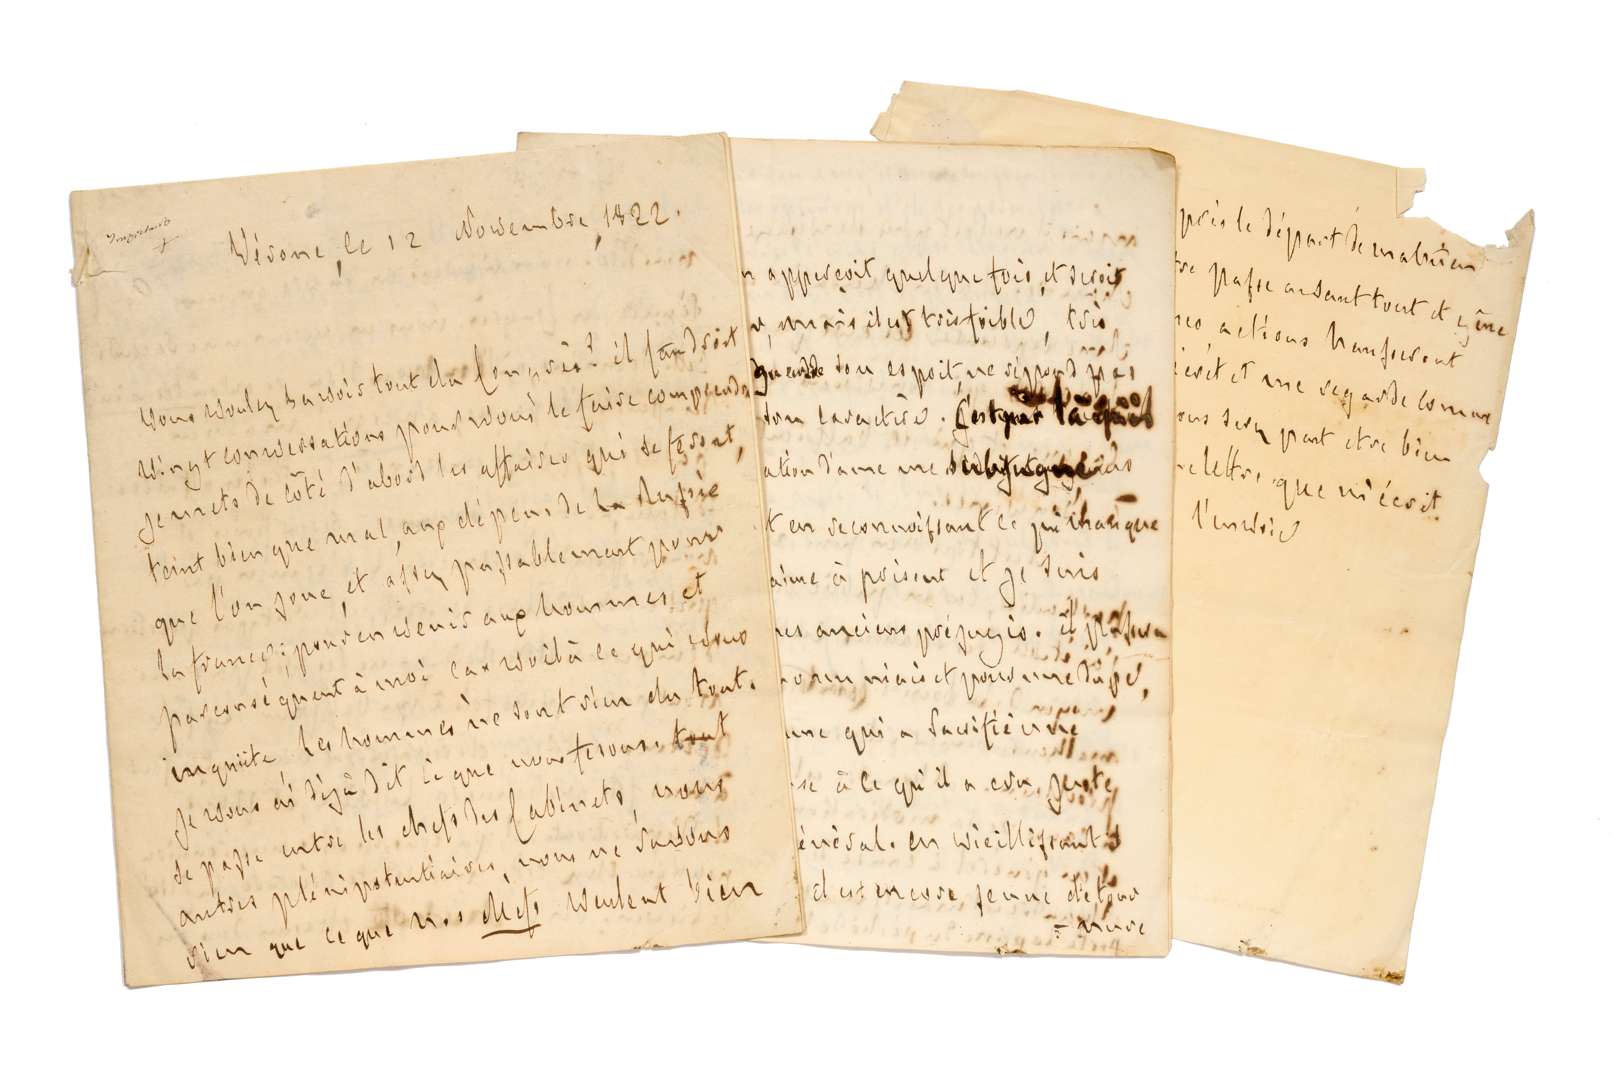 Vérone, le 12 Novembre, 1822.
vous voulez savoir tout du Congrès? il faudroit
vingt conversations pour vous le faire comprendre
je mets de côté d'abord les affaires qui se feront,
tant bien que mal, aux dépens de la Russie
que l'on joue, et assez passablement pour
la france; pour en venir aux hommes, et
par conséquent à moi car voilà ce qui vous
inquiète les hommes ne sont rien du tout.
je vous ai déjà dit ce que nous ferons. tout
se passe entre les chefs des Cabinets, nous
autres plénipotentiaires, nous ne savons
rien que ce que nos chefs veulent bien
apperçoit quelque fois, et seroit
mais il est très foible, très
que son esprit, ne répond pas
son caractère. C'est par
ation d'ame me subjugue
et en reconnoissant ce qui manque
aime à présent et je suis
mes anciens préjugés. il passera
un niais et pour une dupe,
une qui a sacrifié une
se à ce qu'il a cru juste
énéral. en vieillissant
il est encore jeune
près le départ de
passe avant tout et
actions hausseront
et me regarde comme
ous serez peut etre bien
lettre que m'écrit
l'envoie